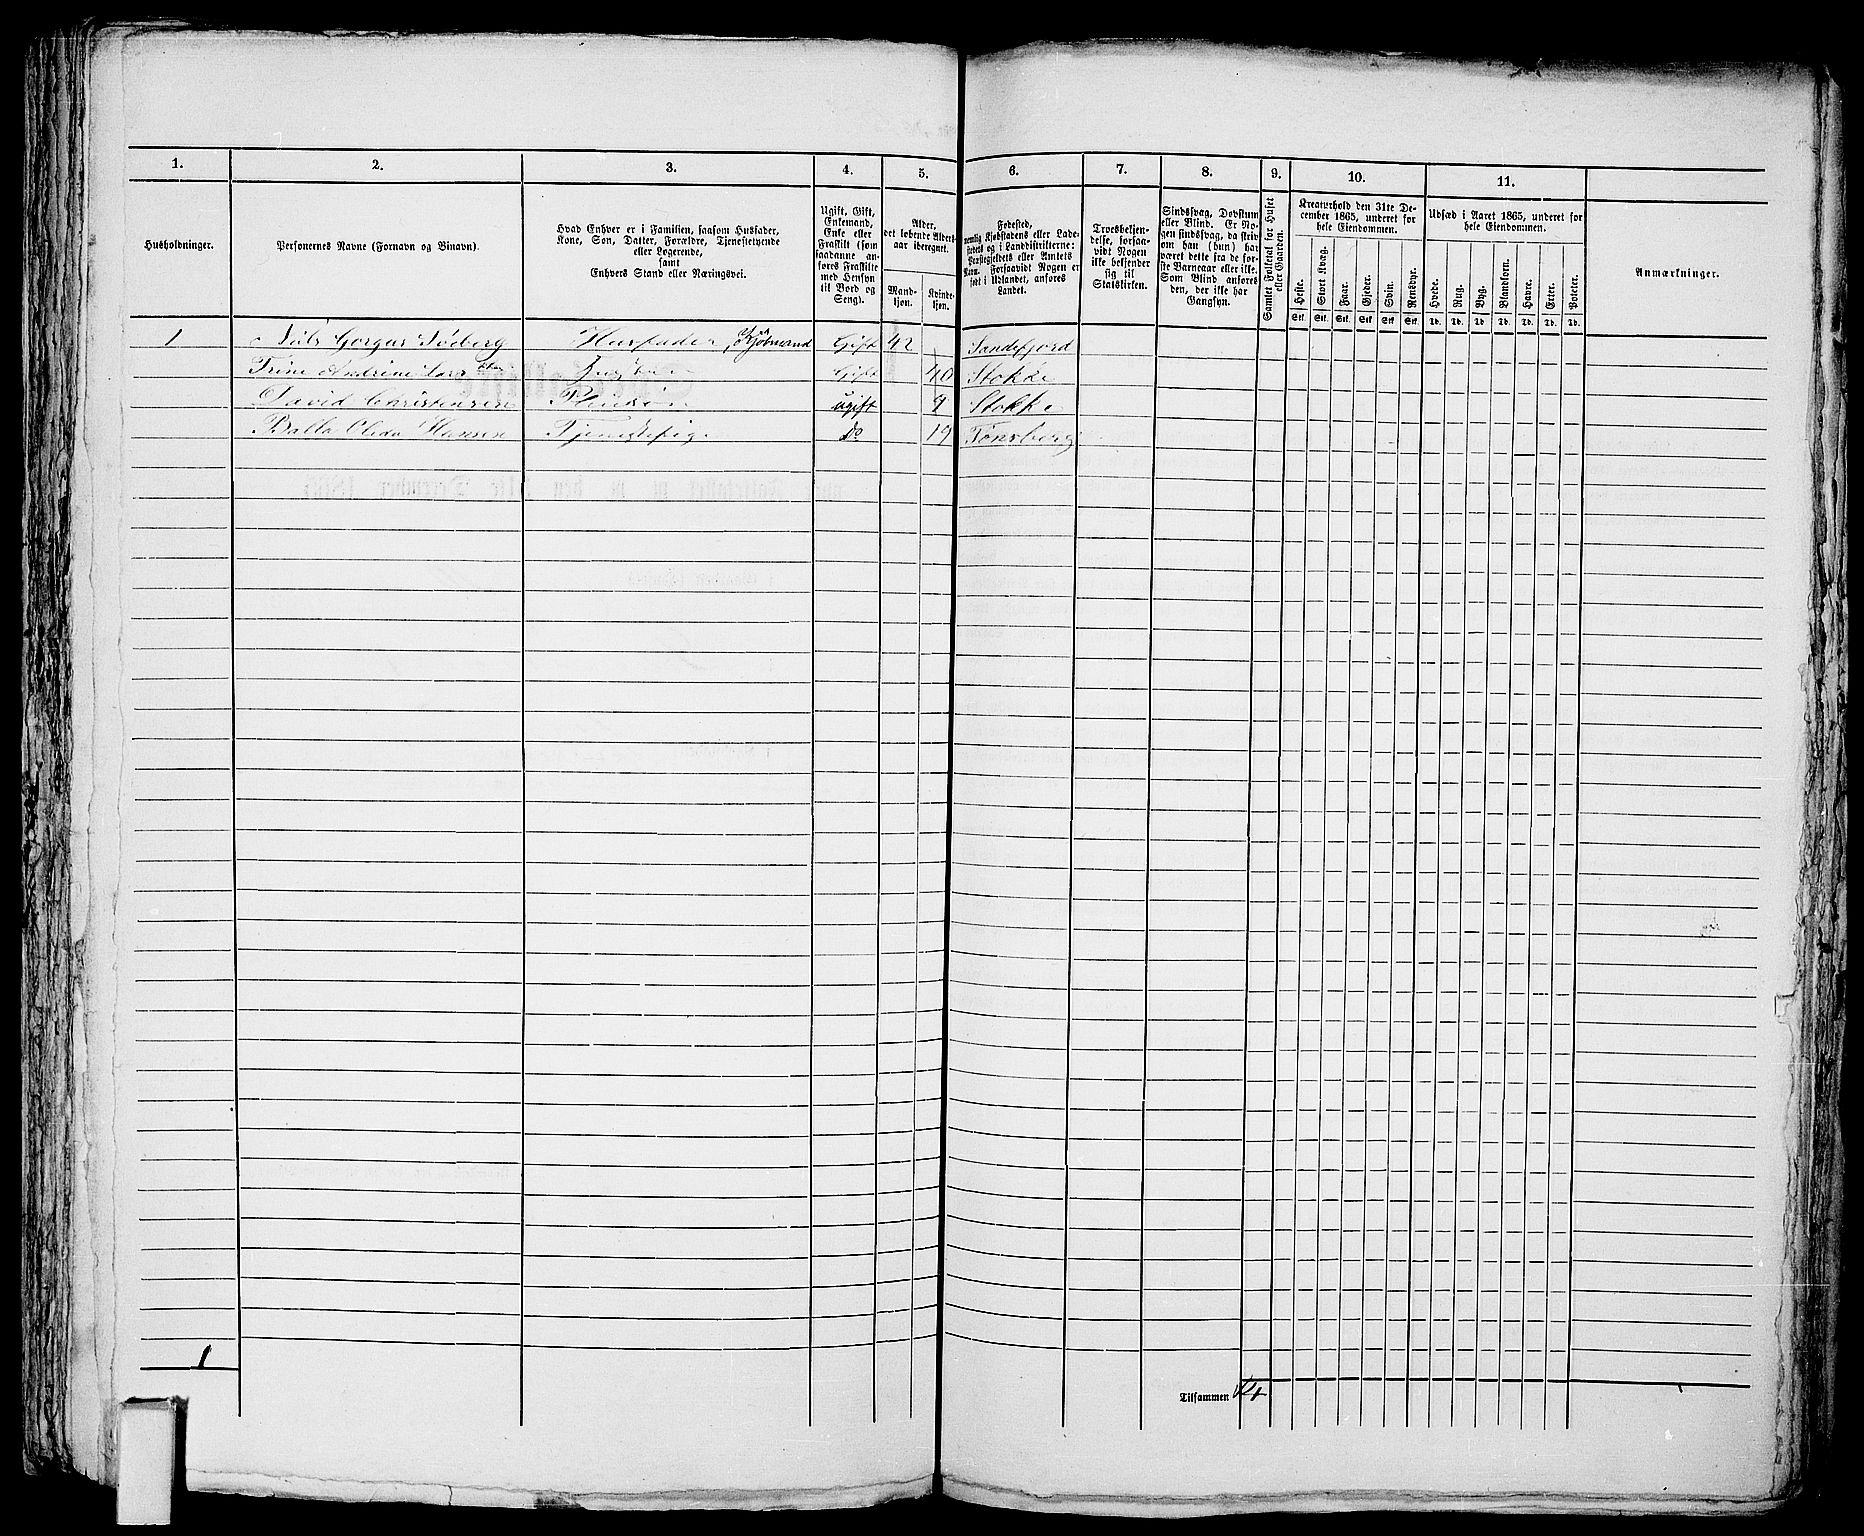 1. 2. 3. 4. 5. 6. 7. 8. 9. 10. 11.
Husholdninger.
Personernes Navne (Fornavn og Binavn).
Hvad Enhver er i Familien, saasom Husfader,
Kone, Søn, Datter, Forældre, Tjenestetyende
eller Logerende,
samt
Enhvers Stand eller Næringsvei.
Ugift, Gift,
Enkemand,
Enke eller
Fraskilt (som
saadanne an-
føres Fraskilte
med Hensyn
til Bord og
Seng).
Alder,
det løbende Alders-
aar iberegnet.
Mand-
kjøn.
Kvinde-
kjøn.
Fødested,
nemlig Kjøbstadens eller Lade-
stedets og i Landdistrikterne:
Præstegjeldets eller Amtets
Navn. Forsaavidt Nogen er
født i Udlandet, anføres
Landet.
Troesbekjen-
delse, forsaa-
vidt Nogen
ikke bekjender
sig til
Statskirken.
Sindssvag, Døvstum
eller Blind. Er No-
gen sindssvag, da skriv
om han (hun) har
været dette fra de før-
ste Barneaar eller ikke.
Som Blind anføres
den, der ikke har
Gangsyn.
Samlet Folketal for Huset
eller Gaarden.
Kreaturhold den 31te De-
cember 1865, underet for
hele Eiendommen.
Heste. Stort Kvæg. Faar. Gjeder. Svin. Rensdyr.
Stk. Stk. Stk. Stk. Stk. Stk.
Udsæd i Aaret 1865, underet for
hele Eiendommen.
Hvede. Rug. Byg. Blandkorn. Havre. Erter. Poteter.
Td. Td. Td. Td. Td. Td. Td.
Anmærkninger.
1 Søberg Husfader, Kjøbmand Gift 42 Sandefjord
Trine Andrine Gift 40 Stokke
David Christensen Pleiesøn ugift 9 Stokke
Hansen Tjenestepige do 19 Tønsberg
1
Tilsammen 4